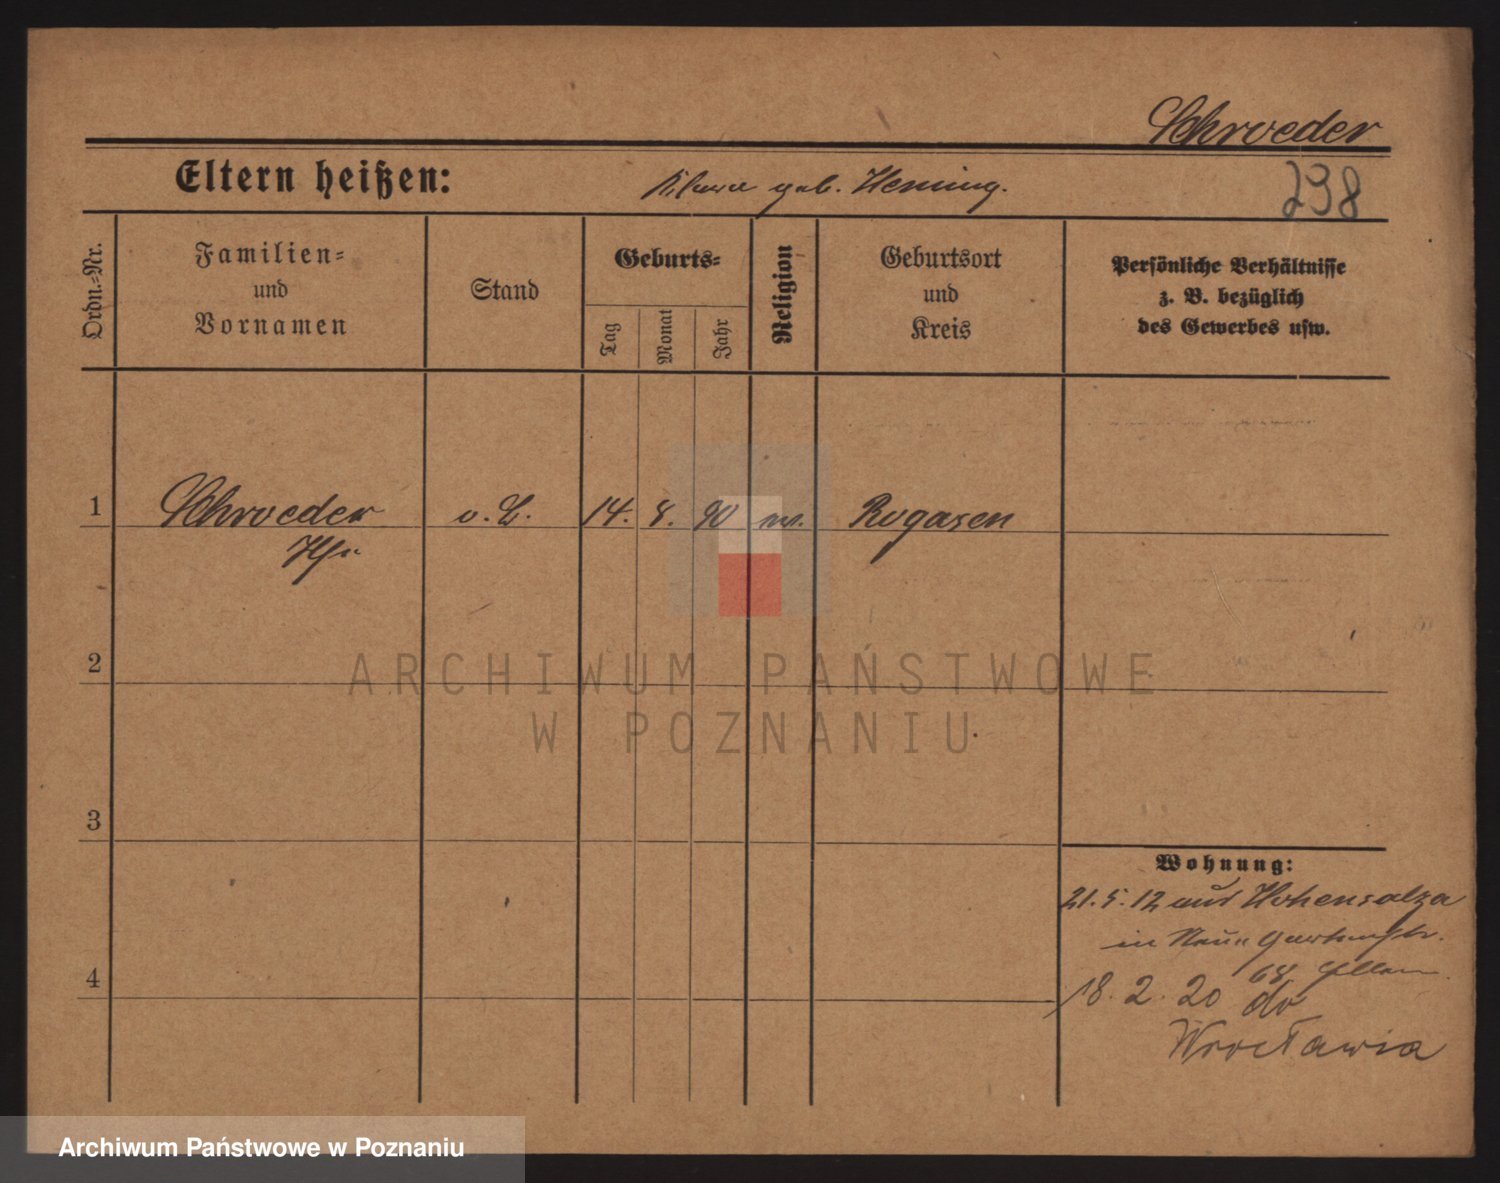 Schroeder
Eltern heißen:
geb. Henning.
298
Ordn.-Nr.
Familien-
und
Vornamen
Stand
Geburts-
Tag
Monat
Jahr
Religion
Geburtsort
und
Kreis
Persönliche Verhältnisse
z. B. bezüglich
des Gewerbes usw.
1
Schroeder
o. L.
14. 8. 90
Rogasen
2
ARCHIWUM PAŃSTWOWE
W POZNANIU
3
Wohnung:
21. 5. 12 aus Hohensalza
in Neue Gartenstr.
4
18. 2. 20 do
Wrocławia
Archiwum Państwowe w Poznaniu